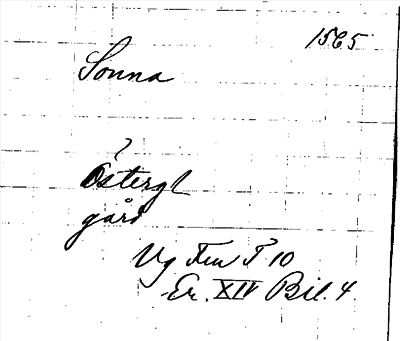 1565
Sonna
Östergl
gård
Vg Fru T 10
Er. XIV Bil. 4.